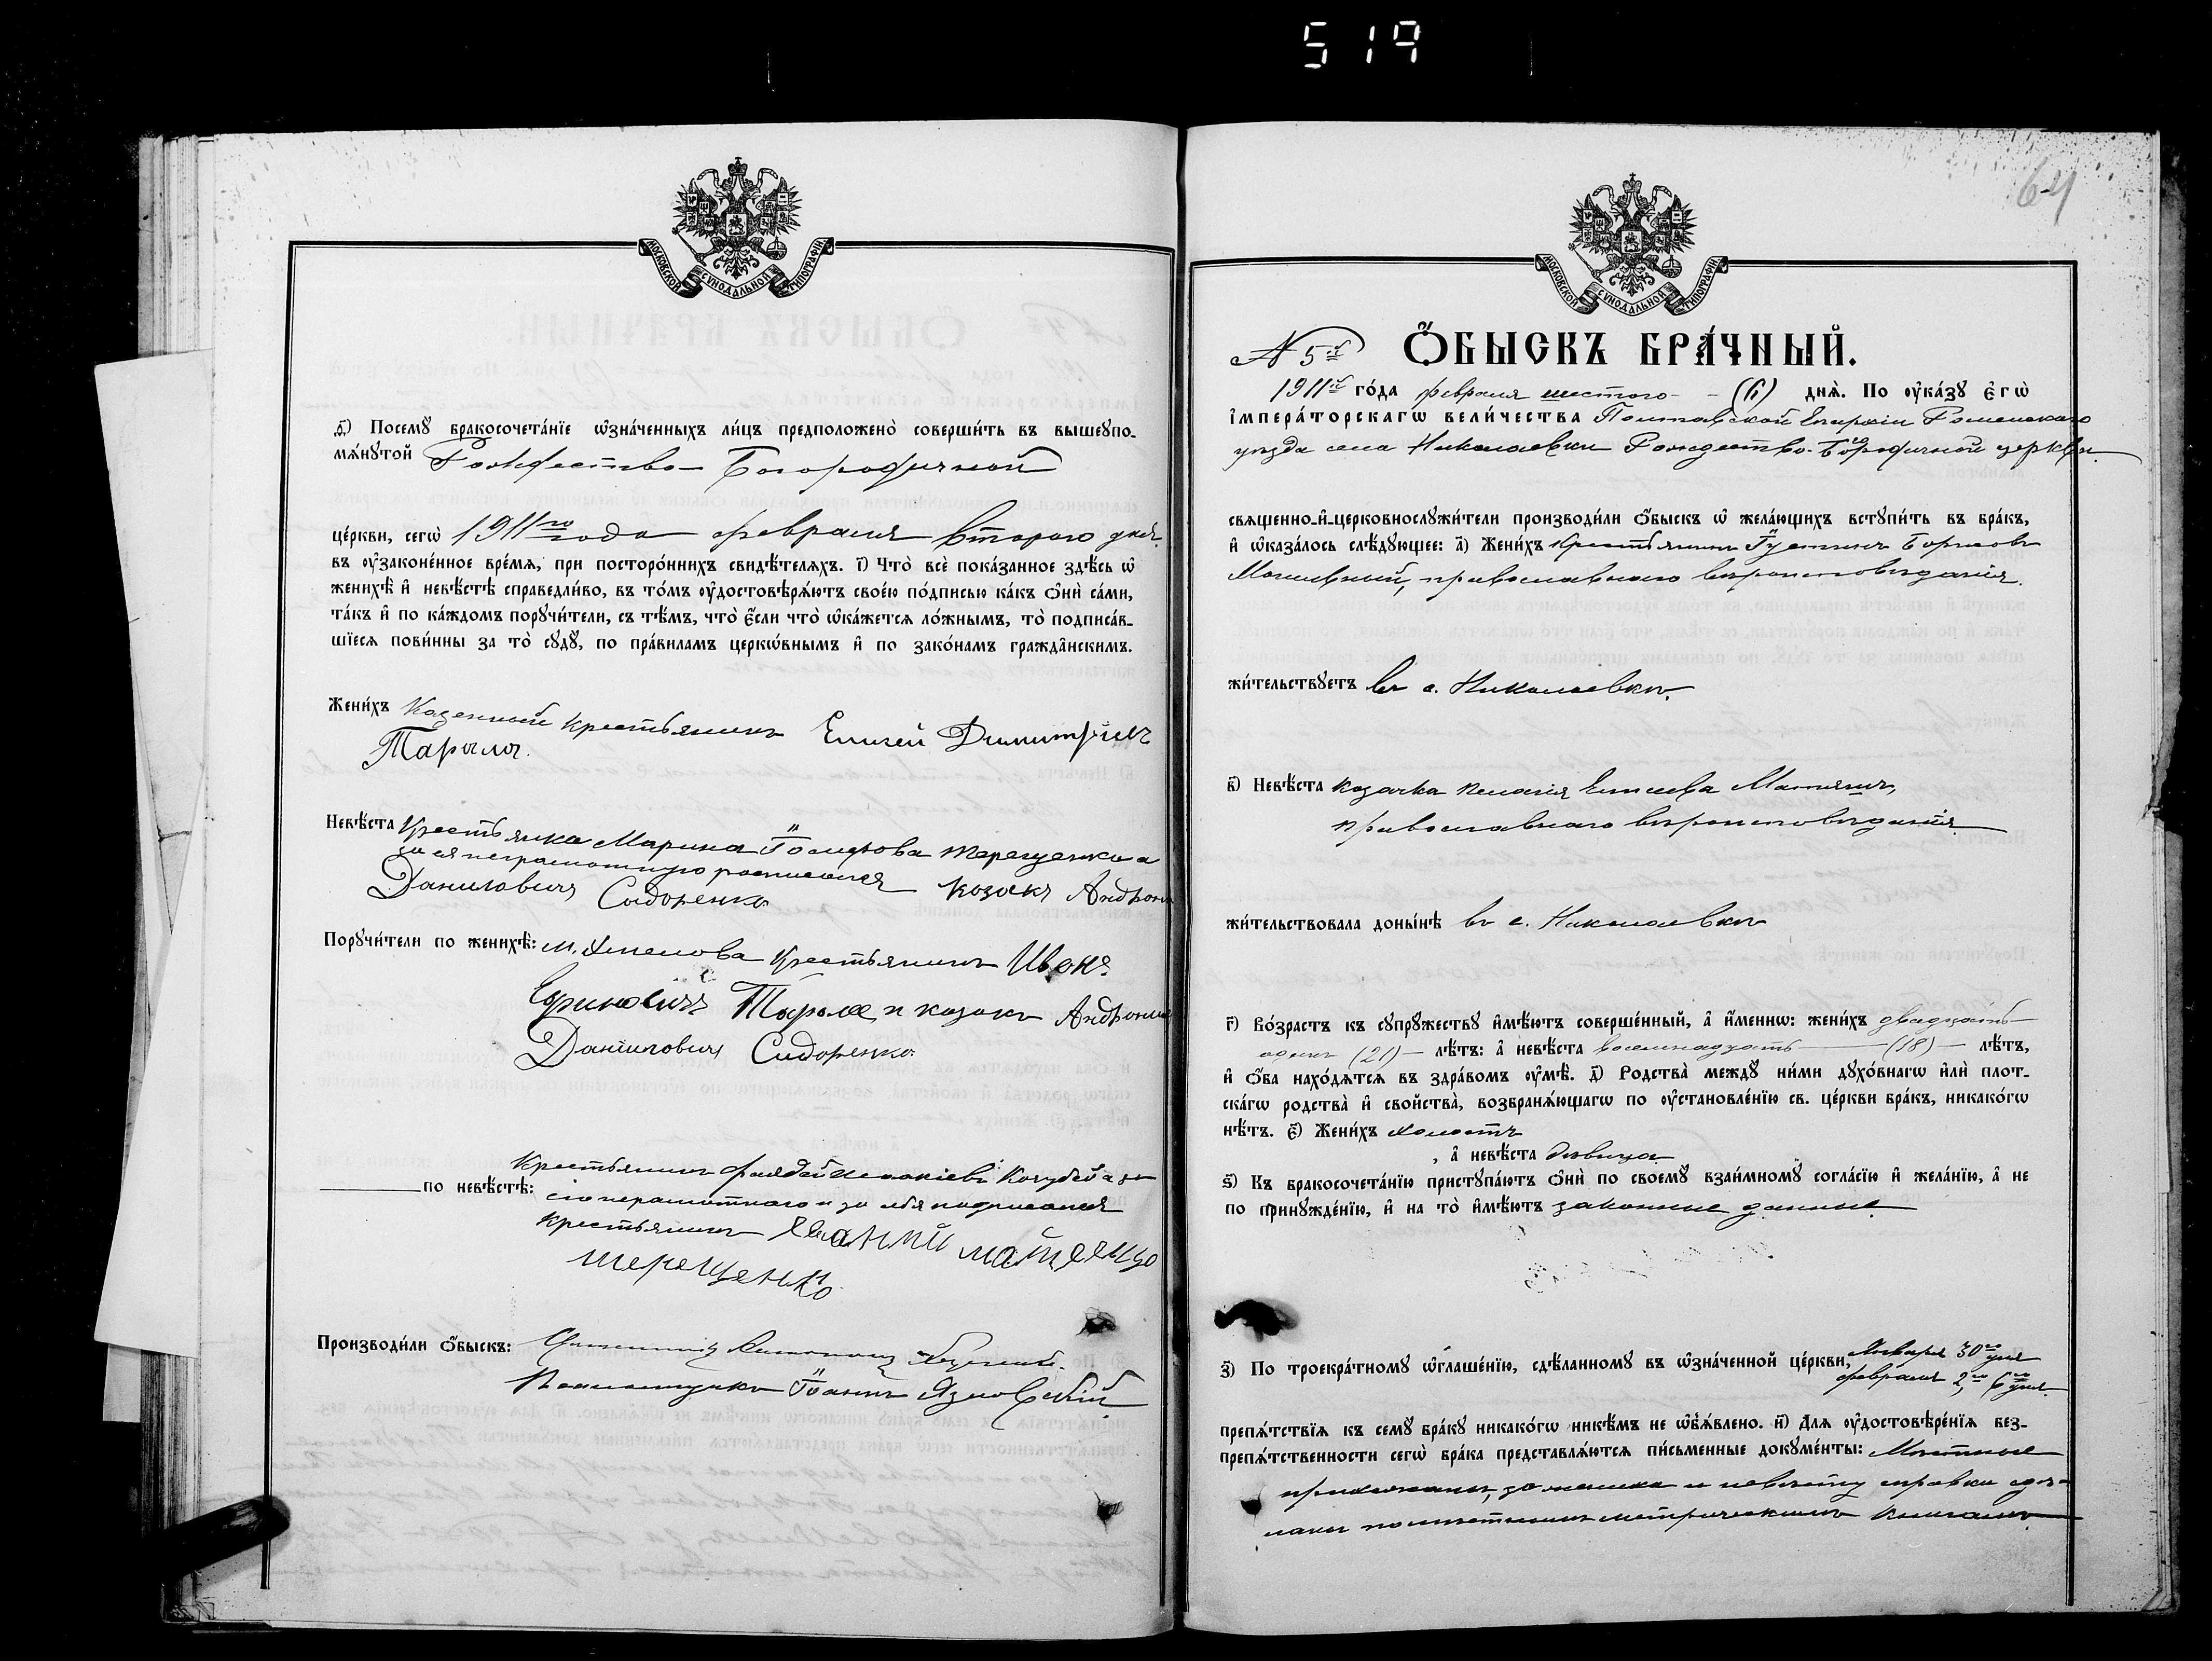 519
МОСКОВСКОЙ СѴНОДАЛЬНОЙ ТИПОГРАФІИ
ѳ҃) Посемꙋ бракосочета́нїе ѡ҆зна́ченныхъ ли́цъ предположено̀ соверши́ть въ вышеꙋпо-
мѧ́нꙋтой Рождество-Богородичной
це́ркви, сегѡ̀ 1911го года февраля второго дня
въ ᲂу҆законе́нное вре́мѧ, при посторо́ннихъ свидѣ́телѧхъ. і҃) Что̀ всѐ пока́занное здѣ́сь ѡ҆
женихѣ̀ и҆ невѣ́стѣ справедли́во, въ то́мъ ᲂу҆достовѣрѧ́ютъ свое́ю по́дписью ка́къ ѻ҆нѝ са́ми,
та́къ и҆ по ка́ждомъ порꙋчи́тели, съ тѣ́мъ, что̀ є҆́сли что̀ ѡ҆ка́жетсѧ ло́жнымъ, то̀ подписа́в-
шїесѧ пови́нны за то̀ сꙋдꙋ̀, по пра́виламъ церкѡ́внымъ и҆ по зако́намъ гражда́нскимъ.
Жени́хъ Казенный крестьянинъ Елисей Димитріевъ
Тарыма.
Невѣ́ста Крестьянка Марина Терещенкова а
за ея неграмотную росписался козакъ Андрони
Даниловичъ Сидоренко
Порꙋчи́тели по женихѣ̀: м. Хмелова крестьянинъ Иванъ
и козакъ Андроник
Даниловичъ Сидоренко
Крестьянинъ Кочубей а за
по невѣ́стѣ: его неграмотнаго и за себя подписался
крестьянинъ
терещенко
Производи́ли ѻ҆́быскъ: Священникъ
Псаломщикъ Іоаннъ Язловскій
64
МОСКОВСКОЙ СѴНОДАЛЬНОЙ ТИПОГРАФІИ
N 5й Ѻ҆БЫСКЪ БРА́ЧНЫЙ.
1911й го́да февраля шестого (6) днѧ̀. По ᲂу҆ка́зꙋ Є҆гѡ̀
І҆мпера́торскагѡ вели́чества Полтавской Епархіи Роменскаго
уѣзда села Николаевки Рождество-Бгородичной церкви
свѧщенно-и҆-церковнослꙋжи́тели производи́ли ѻ҆́быскъ ѡ҆ жела́ющихъ встꙋпи́ть въ бра́къ,
и҆ ѡ҆каза́лось слѣ́дꙋющее: а҃) Жени́хъ крестьянинъ Густинъ Борисовъ
православнаго вѣроисповѣданія.
жи́тельствꙋетъ въ с. Николаевкѣ.
в҃) Невѣ́ста козачка Пелагія Елисеева
православнаго вѣроисповѣданія
жи́тельствовала доны́нѣ въ с. Николаевкѣ
г҃) Во́зрастъ къ сꙋпрꙋжествꙋ и҆мѣ́ютъ соверше́нный, а҆ и҆́меннѡ: жени́хъ двадцать
одинъ (21) лѣ́тъ: а҆ невѣ́ста восемнадцать (18) лѣ́тъ,
и҆ ѻ҆́ба нахо́дѧтсѧ въ здра́вомъ ᲂу҆мѣ̀. д҃) Родства̀ междꙋ ни́ми дꙋхо́внагѡ и҆лѝ плот-
ска́гѡ родства̀ и҆ сво́йства, возбранѧ́ющагѡ по ᲂу҆становле́нїю св. це́ркви бра́къ, никако́гѡ
нѣ́тъ. є҃) Жени́хъ холостъ
, а҆ невѣ́ста дѣвица
ѕ҃) Къ бракосочета́нїю пристꙋпа́ютъ ѻ҆нѝ по своемꙋ̀ взаи́мномꙋ согла́сїю и҆ жела́нїю, а҆ не
по принꙋжде́нїю, и҆ на то̀ и҆мѣ́ютъ законные данные
з҃) По троекра́тномꙋ ѡ҆глаше́нїю, сдѣ́ланномꙋ въ ѡ҆зна́ченной це́ркви, Января 30го дня
февраля 2го, 6го дня
препѧ́тствїѧ къ семꙋ̀ бра́кꙋ никако́гѡ никѣ́мъ не ѡ҆б̾ѧ́влено. и҃) Длѧ ᲂу҆достовѣре́нїѧ без-
препѧ́тственности сегѡ̀ бра́ка представлѧ́ютсѧ пи́сьменные докꙋме́нты: Мѣстные
прихожане, за жениха и невѣсту справки сдѣ-
ланы по мѣстнымъ метрическимъ книгамъ